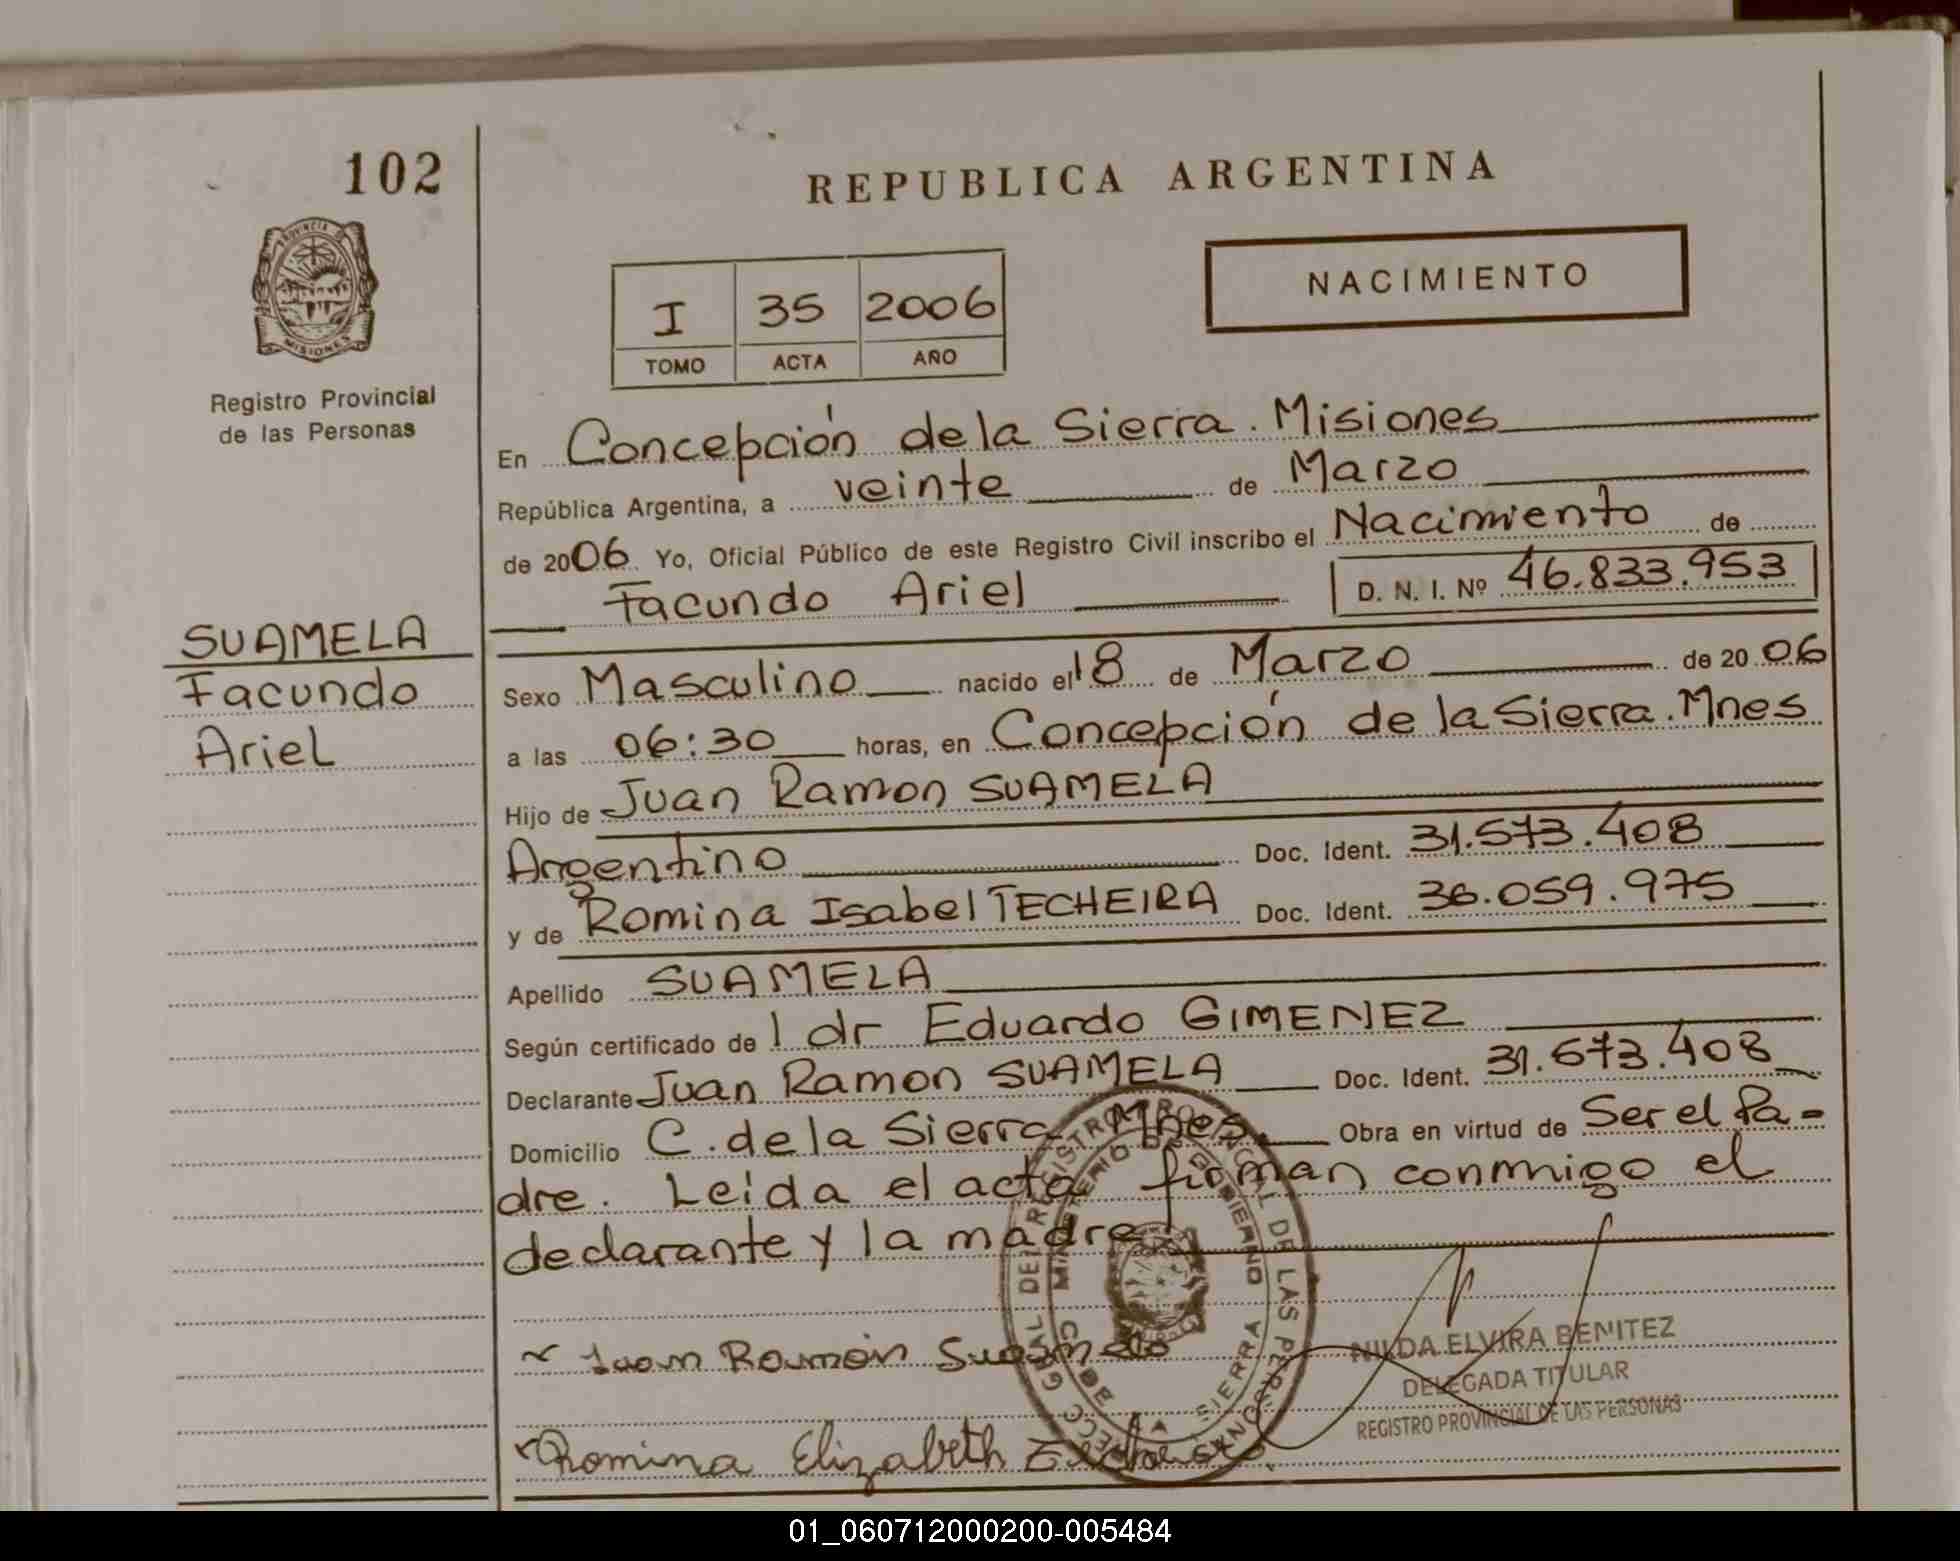 102
REPUBLICA ARGENTINA
PROVINCIA DE
MISIONES
Registro Provincial
de las Personas
NACIMIENTO
I 35 2006
TOMO ACTA AÑO
En Concepción de la Sierra. Misiones
República Argentina, a veinte de Marzo
de 2006 Yo, Oficial Público de este Registro Civil inscribo el Nacimiento de
Facundo Ariel D. N. I. Nº 46.833.953
SUAMELA
Facundo
Ariel
Sexo Masculino nacido el 18 de Marzo de 2006
a las 06:30 horas, en Concepción de la Sierra. Mnes
Hijo de Juan Ramon SUAMELA
Argentino Doc. Ident. 31.573.408
y de Romina Isabel TECHEIRA Doc. Ident. 36.059.975
Apellido SUAMELA
Según certificado de l dr Eduardo GIMENEZ
Declarante Juan Ramon SUAMELA Doc. Ident. 31.573.408
Domicilio C. de la Sierra Mnes. Obra en virtud de Ser el Pa-
dre. Leída el acta firman conmigo el
declarante y la madre
Juan Ramón Suamela
Romina Elizabeth
NILDA ELVIRA BENITEZ
DELEGADA TITULAR
REGISTRO PROVINCIAL DE LAS PERSONAS
MINISTERIO DE GOBIERNO
C. DE LA SIERRA
01_060712000200-005484